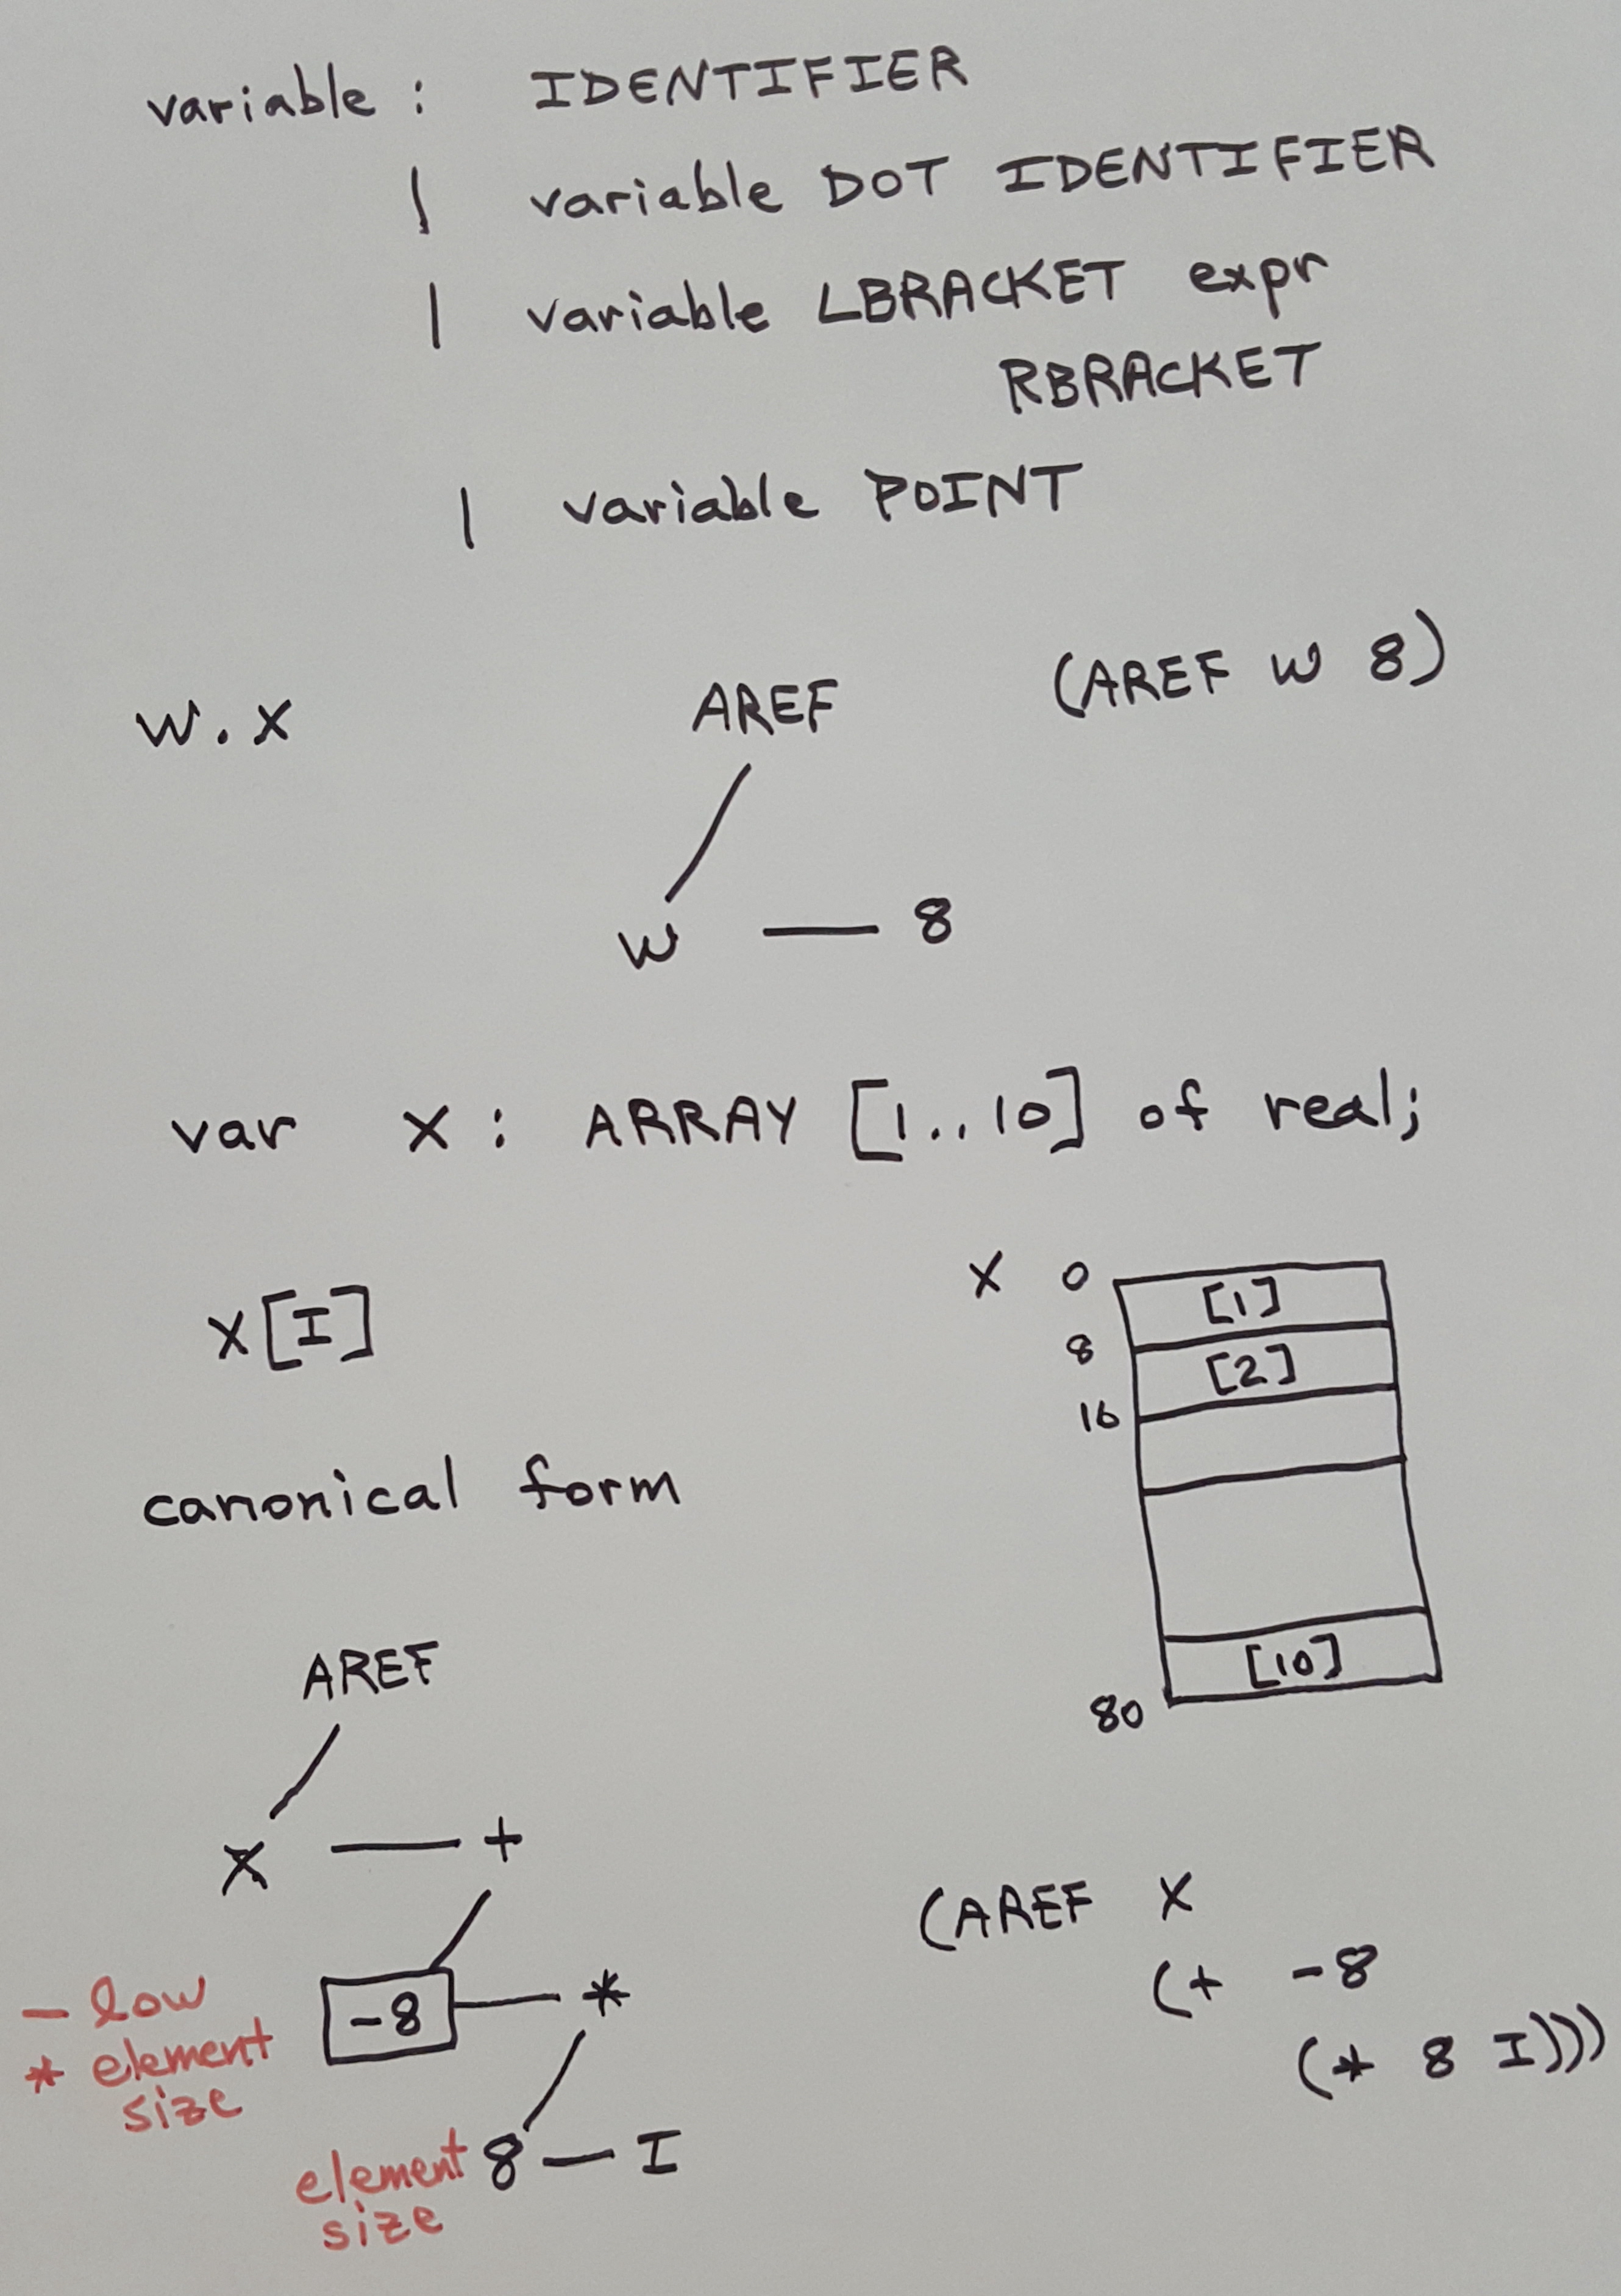 variable : IDENTIFIER
| variable DOT IDENTIFIER
| variable LBRACKET expr
RBRACKET
| variable POINT
W.X
AREF
(AREF W 8)
W — 8
var X : ARRAY [1..10] of real;
X 0 [1]
8 [2]
16
[10]
80
X[I]
canonical form
AREF
X — +
-8 — *
- low
* element
size
element 8 — I
size
(AREF X
(+ -8
(* 8 I)))